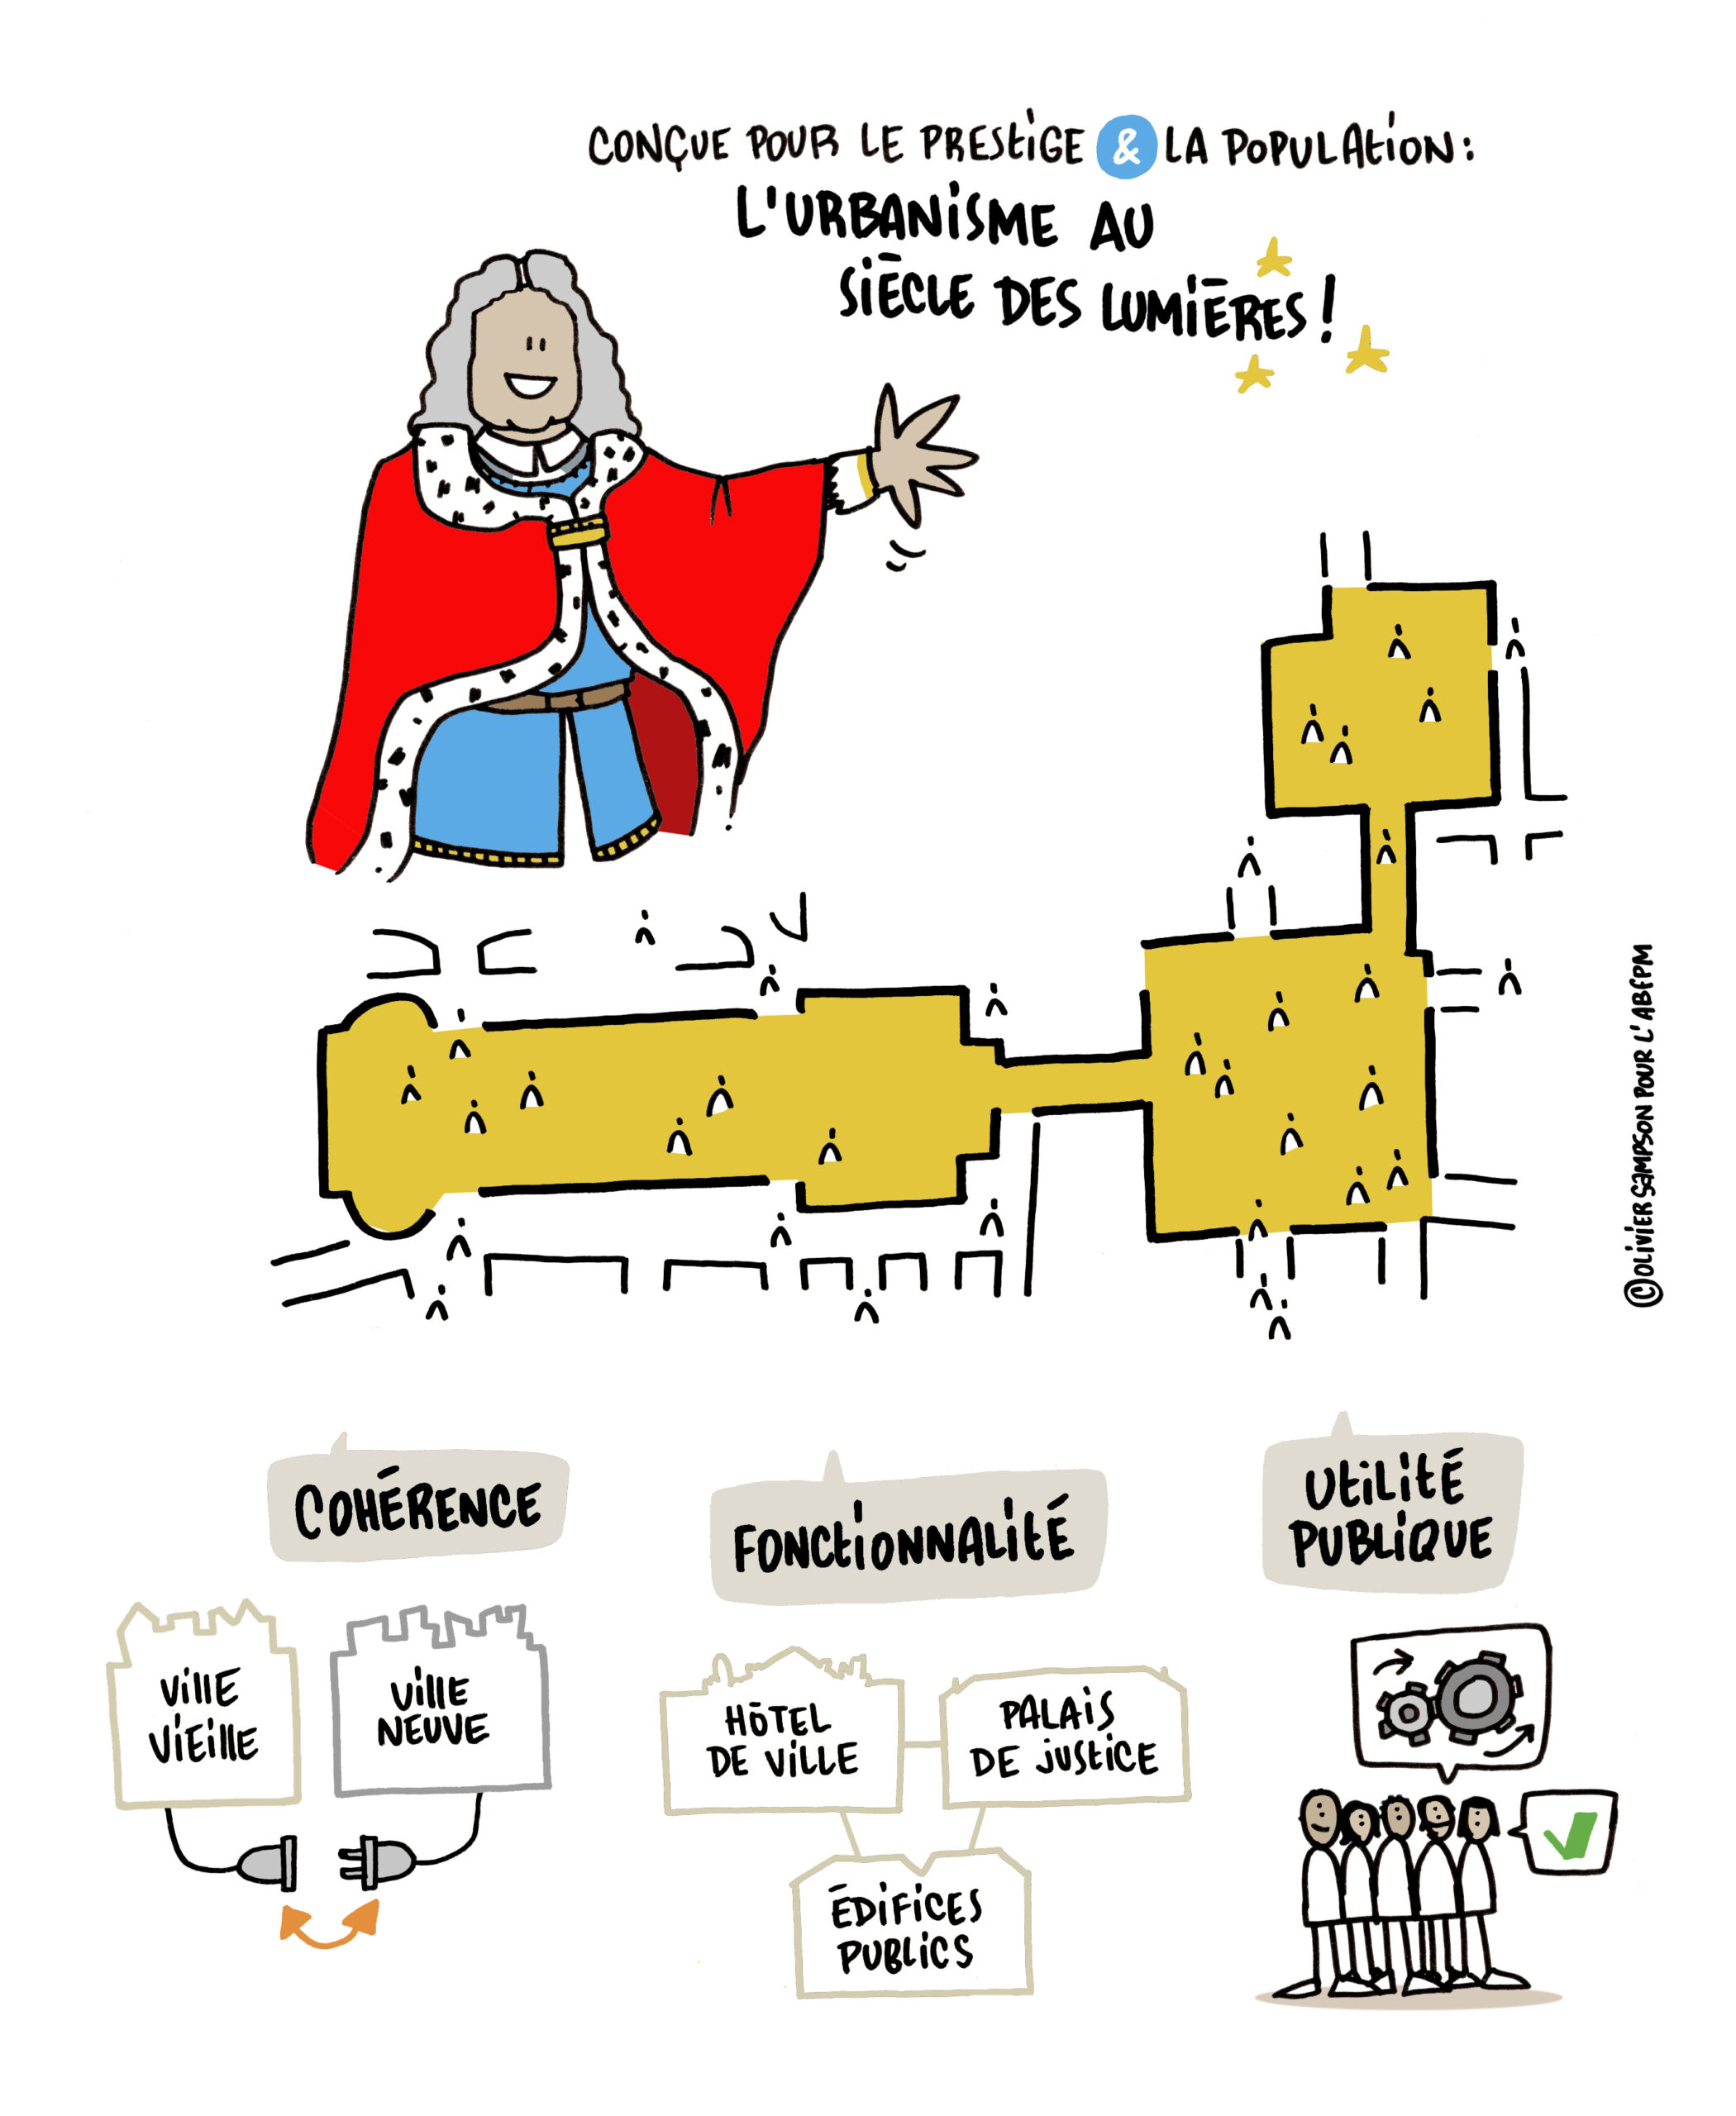 CONÇUE POUR LE PRESTIGE & LA POPULATION :
L'URBANISME AU
SIÈCLE DES LUMIÈRES !
©OLIVIER SAMPSON POUR L'ABFPM
COHÉRENCE
FONCTIONNALITÉ
UTILITÉ
PUBLIQUE
VILLE
VIEILLE
VILLE
NEUVE
HÔTEL
DE VILLE
PALAIS
DE JUSTICE
ÉDIFICES
PUBLICS